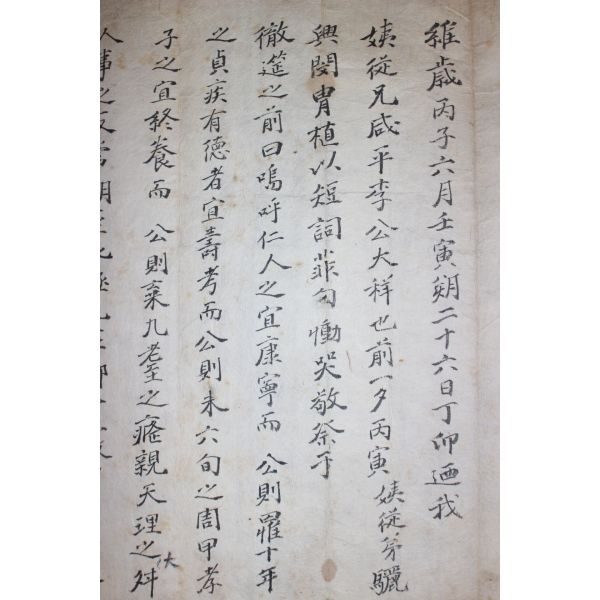 維歲丙子六月壬寅朔二十六日丁卯迺我
姨從兄咸平李公大祥也前一夕丙寅 姨從弟驪
興閔胄植以短詞菲句慟哭敬祭于
徹筵之前曰嗚呼仁人之宜康寧而 公則罹十年
之貞疾有德者宜壽考而公則未六旬之周甲孝
子之宜終養而 公則棄九耋之癃親天理之舛
人事之反常胡至